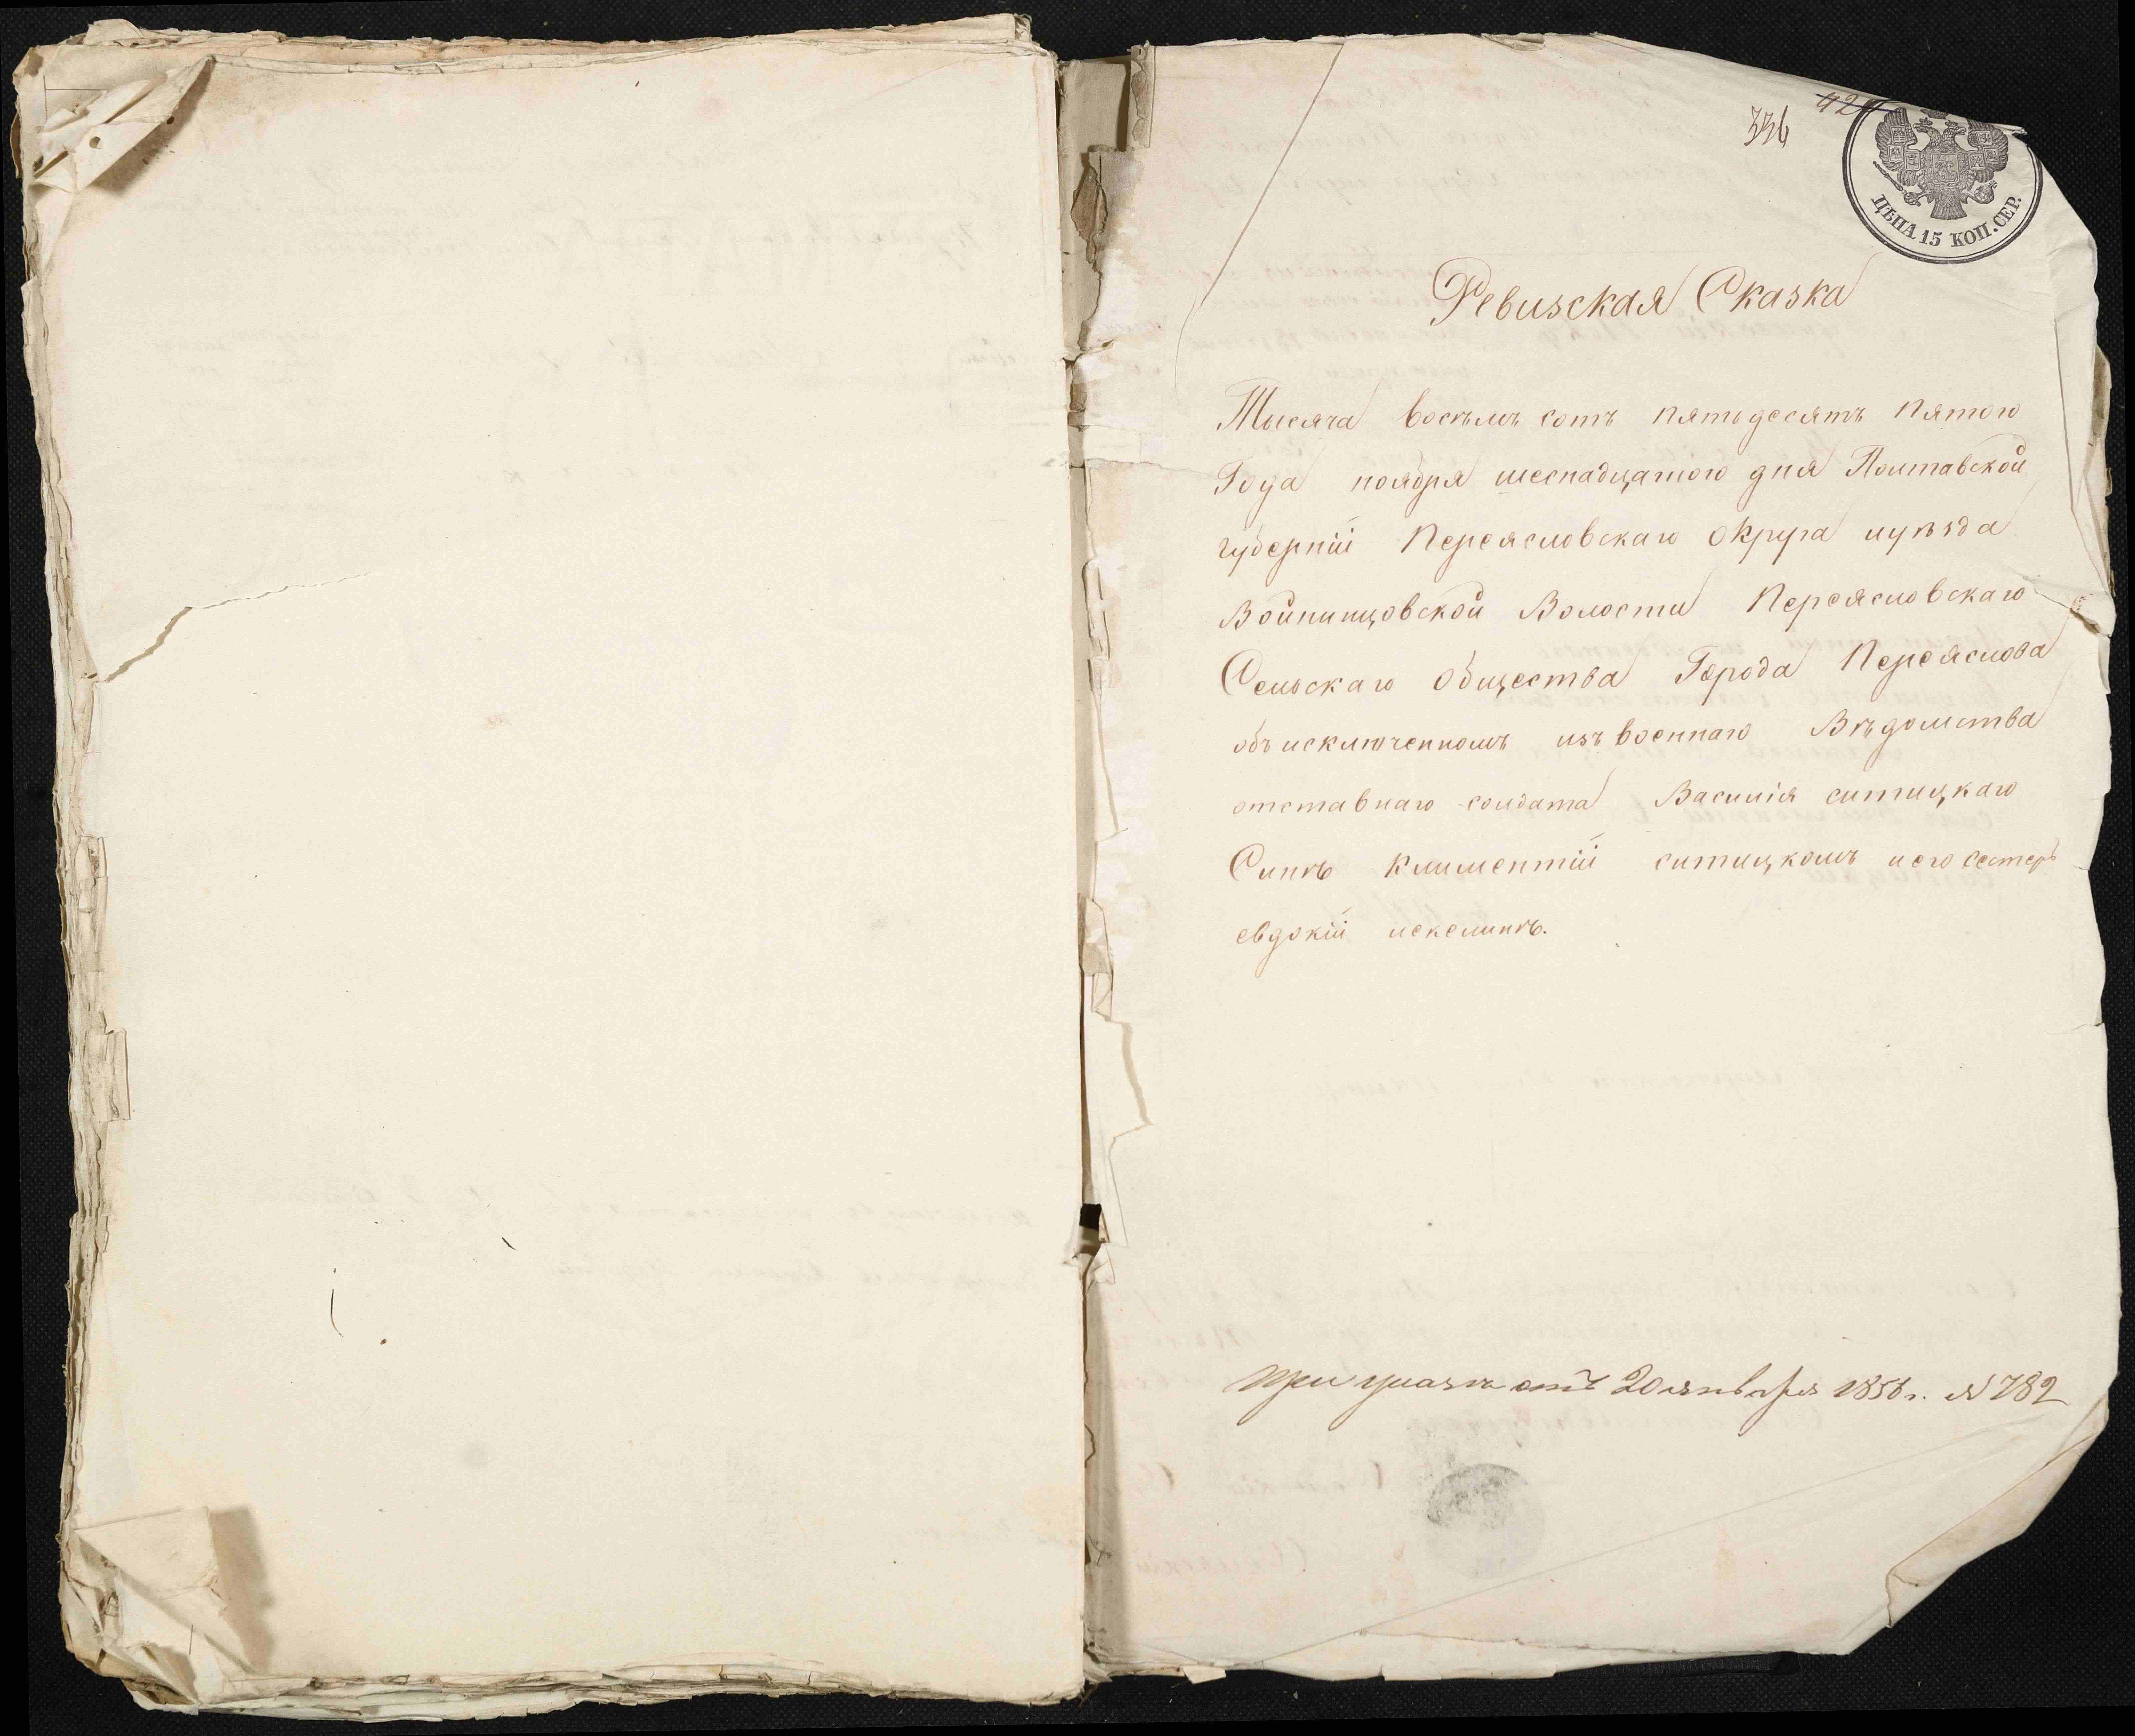 336
42
ЦѢНА 15 КОП. СЕР.
Ревизская Сказка
Тысяча восѣмъ сотъ пятьдесятъ пятого
Года ноября шеснадцатого дня Полтавской
губерніи Переясловскаго округа иуѣзда
Войнинцовской Волости Переясловскаго
Сельскаго общества Города Переяслова
объ исключенномъ изъ военнаго Вѣдомства
отставнаго солдата Василія ситицкаго
Синѣ Климентіи ситицкомъ иего сестеръ
евдокіи
при указѣ отъ 20 января 1856 г. № 782